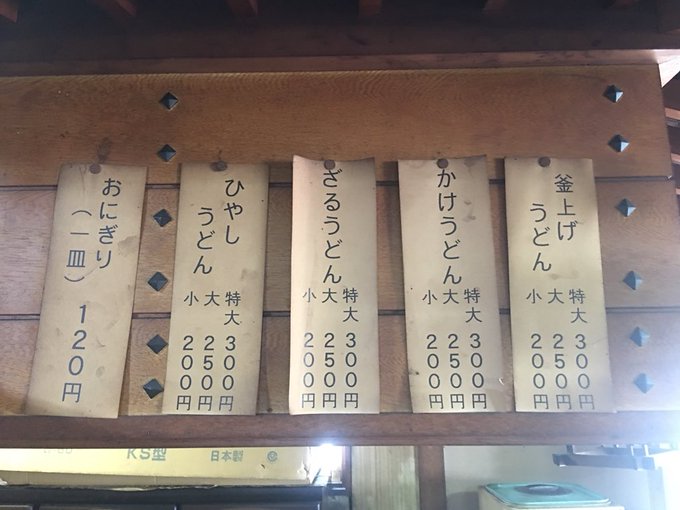 釜上げ
うどん
特大 300円
大 250円
小 200円
かけうどん
特大 300円
大 250円
小 200円
ざるうどん
特大 300円
大 250円
小 200円
ひやし
うどん
特大 300円
大 250円
小 200円
おにぎり
(一皿) 120円
KS型
日本製